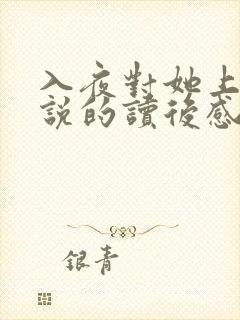 入夜對她上
說的讀後感
銀青